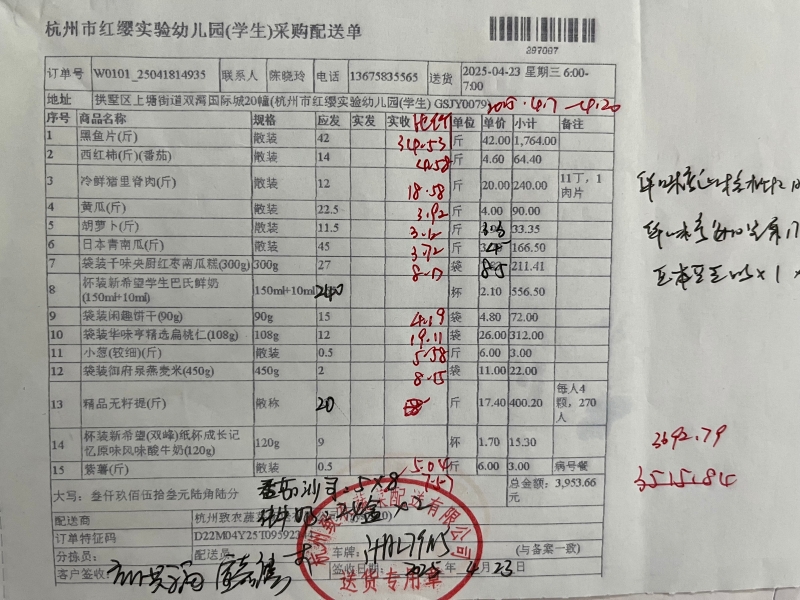 杭州市红缨实验幼儿园(学生)采购配送单
297007
订单号 W0101_25041814935 联系人 陈晓玲 电话 13675835565 送货 2025-04-23 星期三 6:00-7:00
地址 拱墅区上塘街道双湾国际城20幢(杭州市红缨实验幼儿园(学生) GSJY0079)
序号 商品名称 规格 应发 实发 实收 单位 单价 小计 备注
1 黑鱼片(斤) 散装 42 34.53 斤 42.00 1,764.00
2 西红柿(斤)(番茄) 散装 14 4.58 斤 4.60 64.40
3 冷鲜猪里脊肉(斤) 散装 12 18.58 斤 20.00 240.00 11丁，1肉片
4 黄瓜(斤) 散装 22.5 3.92 斤 4.00 90.00
5 胡萝卜(斤) 散装 11.5 斤 33.35
6 日本青南瓜(斤) 散装 45 3.72 斤 166.50
7 袋装千味央厨红枣南瓜糕(300g) 300g 27 袋 8.5 211.41
8 杯装新希望学生巴氏鲜奶(150ml+10ml) 150ml+10ml 240 杯 2.10 556.50
9 袋装闲趣饼干(90g) 90g 15 4.19 袋 4.80 72.00
10 袋装华味亨精选扁桃仁(108g) 108g 12 19.11 袋 26.00 312.00
11 小葱(较细)(斤) 散装 0.5 5.58 斤 6.00 3.00
12 袋装御府泉燕麦米(450g) 450g 2 8.55 袋 11.00 22.00
13 精品无籽提(斤) 散称 20 斤 17.40 400.20 每人4颗，270人
14 杯装新希望(双峰)纸杯成长记忆原味风味酸牛奶(120g) 120g 9 杯 1.70 15.30
15 紫薯(斤) 散装 0.5 5.04 斤 6.00 3.00 病号餐
3692.79
3515.84
大写：叁仟玖佰伍拾叁元陆角陆分 总金额：3,953.66元
配送商 杭州致农蔬
订单特征码 D22M04Y25T095923
分拣员： 配送员 车牌： (与备案一致)
客户签收： 签收日期： 2025年4月23日
送货专用章